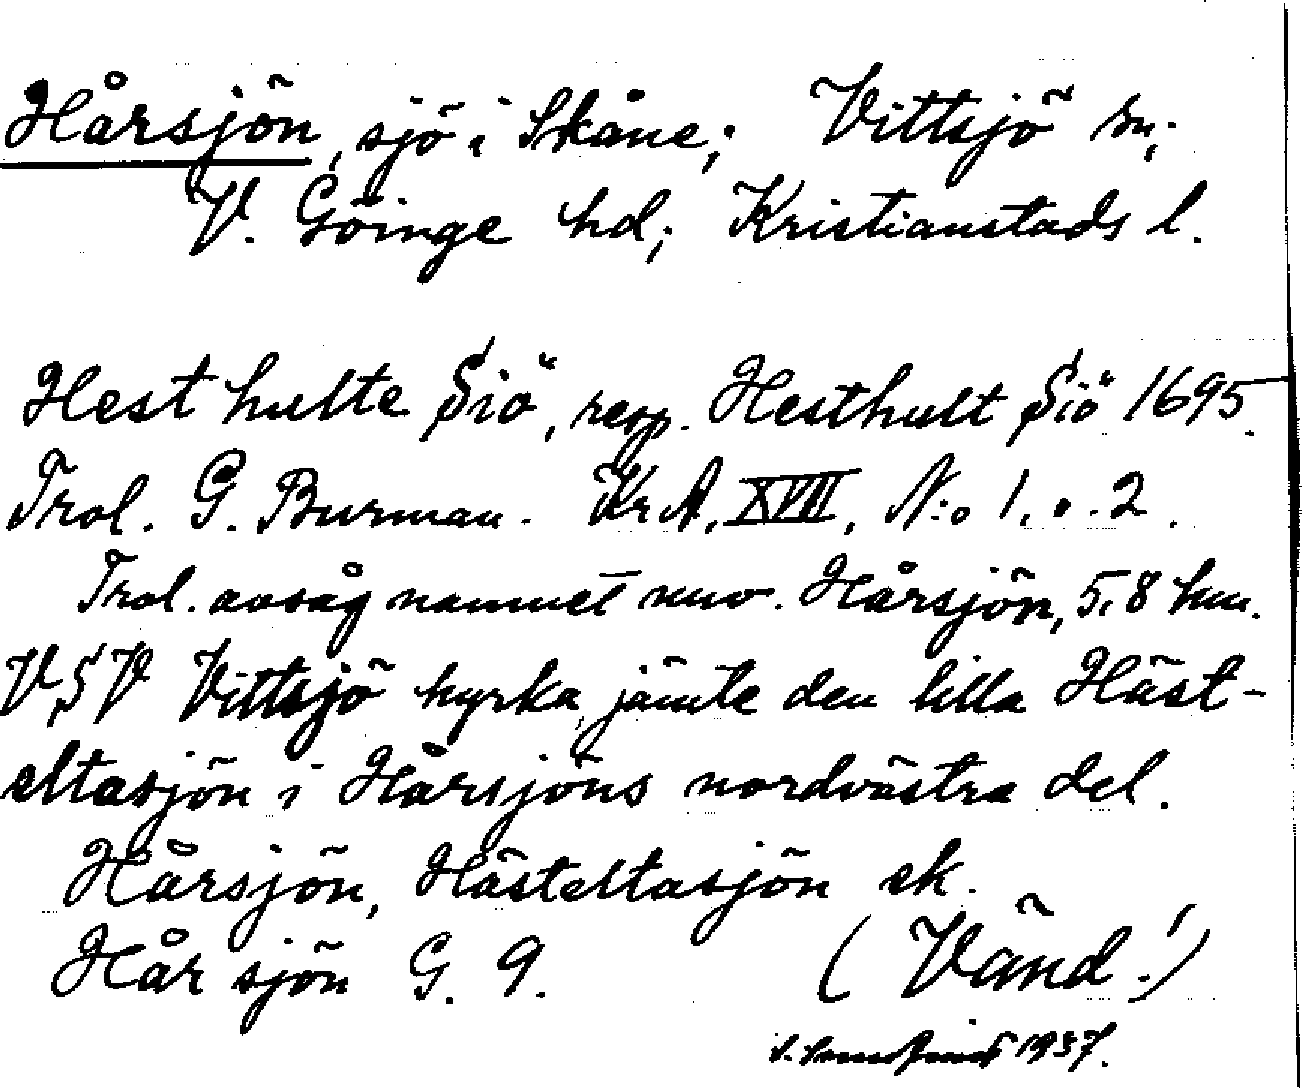 Hårsjön, sjö i Skåne; Vittsjö sn;
V. Göinge hd; Kristianstads l.
Hest hulte Siö, resp. Hesthult Siö 1695.
Trol. G. Burman. Kr A, XVII, N:o 1, o. 2.
Trol. avsåg namnet nuv. Hårsjön, 5,8 km.
V,SV Vittsjö kyrka, jämte den lilla Häst-
eltasjön i Hårsjöns nordvästra del.
Hårsjön, Hästeltasjön ek.
Hår sjön G. 9. (Vänd!)
1937.